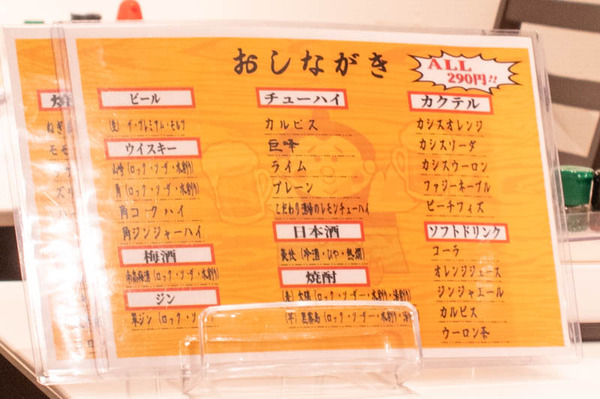 おしながき
ALL
290円!!
ビール
(生) ザ・プレミアム・モルツ
ウイスキー
山崎 (ロック・ソーダ・水割り)
角 (ロック・ソーダ・水割り)
角コークハイ
角ジンジャーハイ
梅酒
梅酒 (ロック・ソーダ・水割り)
ジン
ジン (ロック・ソ
チューハイ
カルピス
巨峰
ライム
プレーン
こだわり酒場のレモンチューハイ
日本酒
(冷酒・ひや・熱燗)
焼酎
(麦)
(ロック・ソーダー・水割り・湯割り)
(芋) 黒霧島 (ロック・ソーダー・水割り・
カクテル
カシスオレンジ
カシスソーダ
カシスウーロン
ファジーネーブル
ピーチフィズ
ソフトドリンク
コーラ
オレンジジュース
ジンジャエール
カルピス
ウーロン茶